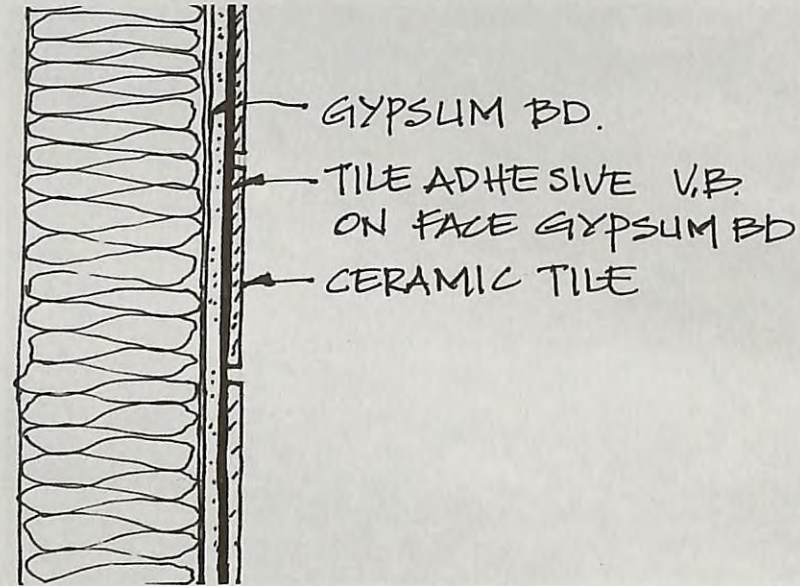 GYPSUM BD.
TILE ADHESIVE V.B.
ON FACE GYPSUM BD
CERAMIC TILE